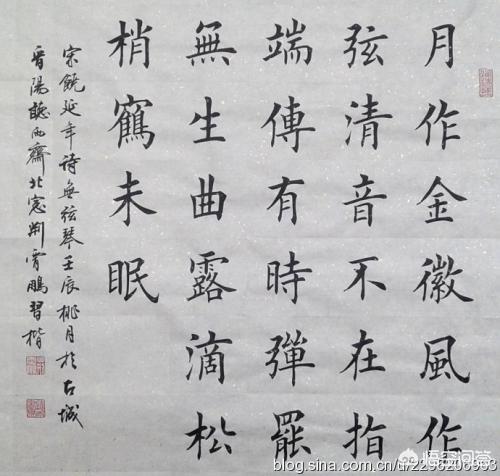 月作金徽風作
弦清音不在指
端傳有時彈罷
無生曲露滴松
梢鶴未眠
宋饒延年詩無弦琴壬辰桃月於古城
晉陽聽雨齋北窓荆霄鵬習楷
悟空问答